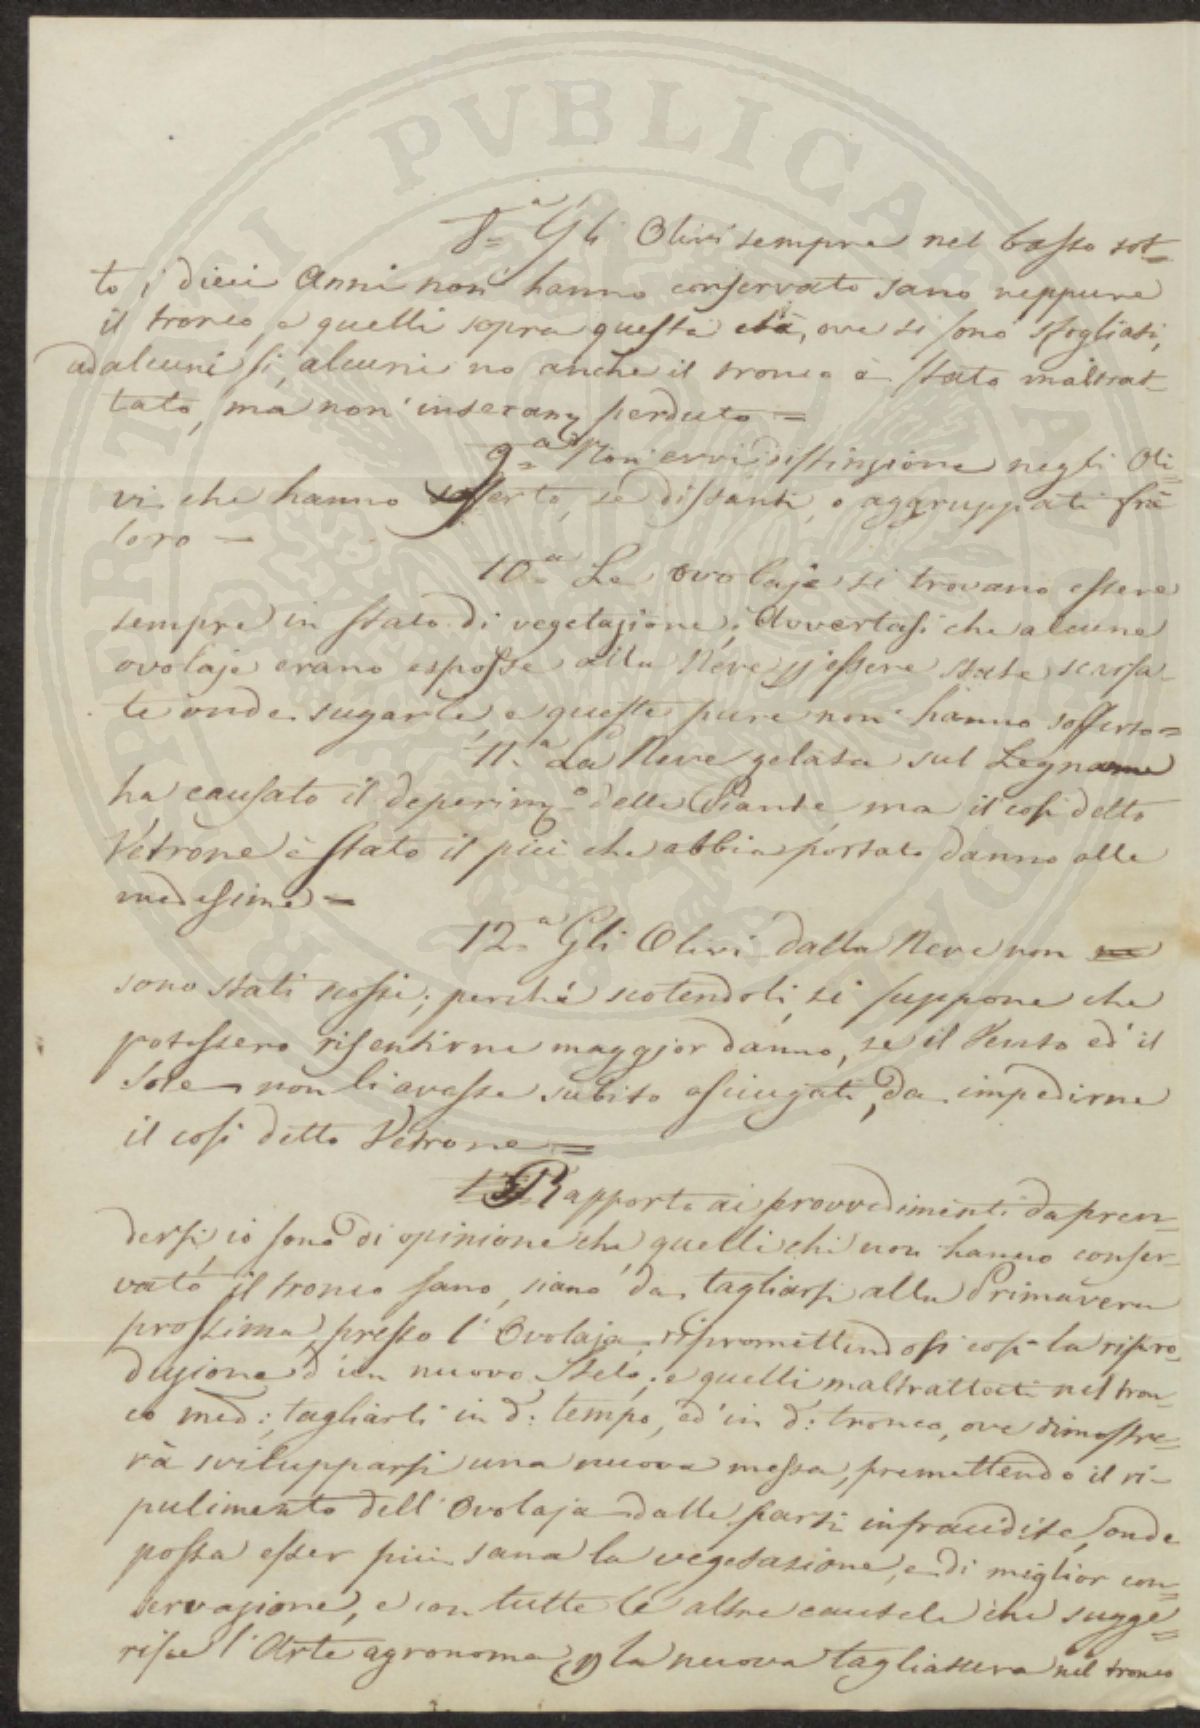 8.ª Gli Olivi sempre nel basso sot=
to i dieci Anni non hanno conservato sano neppure
il tronco, e quelli sopra questa età, ove si sono sfogliati,
ad alcuni si, alcuni no anche il tronco è stato maltrat=
tato, ma non inseram perduto =
9.ª Non evvi distinzione negli Oli=
vi che hanno soferto, se distanti, o aggruppati frà
loro =
10.ª Le ovolaje si trovano essere
sempre in stato di vegetazione; Avvertasi che alcune
ovolaje erano esposte alla Neve p essere state scassa-
te onde sugarle, e queste pure non hanno sofferto =
11.ª La Neve gelata sul Legname
ha causato il deperim.º delle Piante, ma il così detto
Vetrone è stato il più che abbia portato danno alle
medesime =
12.ª Gli Olivi dalla Neve non ne
sono stati scossi; perchè scotendoli, si suppone che
potessero risentirne maggior danno, se il Vento ed' il
Sole non li avesse subito asciugati, da impedirne
il così detto Vetrone =
13 Rapporto ai provvedimenti da pren=
dersi, io sono di opinione che quelli chi non hanno conser-
vato il tronco sano, siano da tagliarsi alla Primavera
prossima, presso l' Ovolaja, ripromettendosi così la ripro=
duzione d' un nuovo Stelo; e quelli maltrattati nel tron=
co med:; tagliarli in d: tempo, ed' in d: tronco, ove dimostre=
rà svilupparsi una nuova messa, premettendo il ri-
pulimento dell' Ovolaja dalle parti infracidite, onde
possa esser più sana la vegetazione, e di miglior con=
servazione, e con tutte le altre cautele che sugge=
risce l' Arte agronoma p la nuova tagliatura nel tronco
PVBLICA